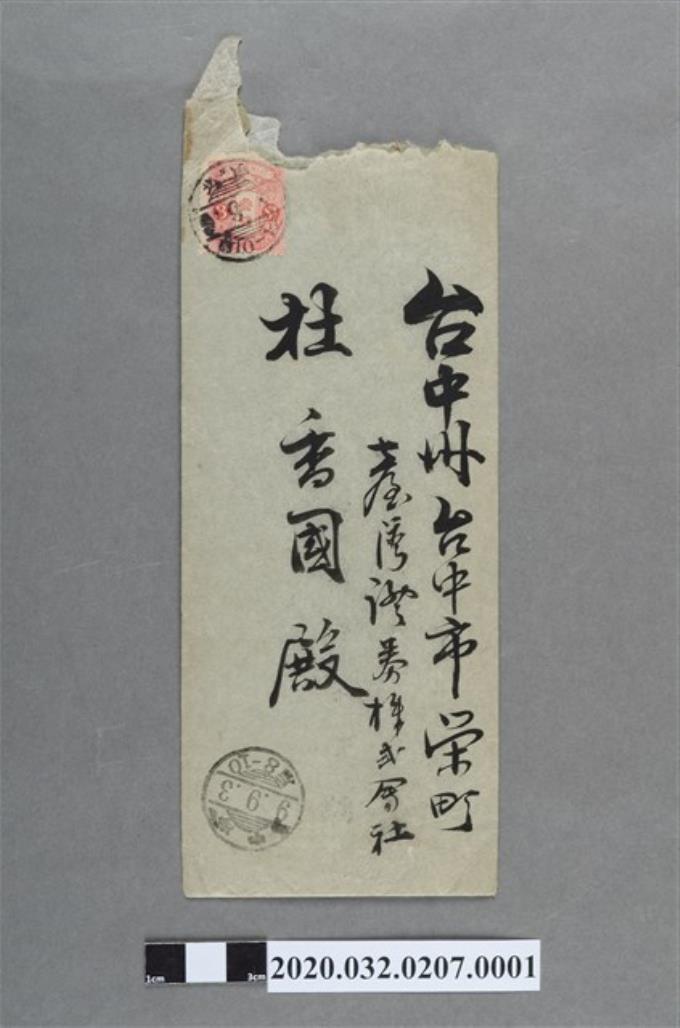 台中州台中市栄町
臺灣證券株式會社
杜香國殿
9.9.3
8-10
1cm
3cm
2020.032.0207.0001